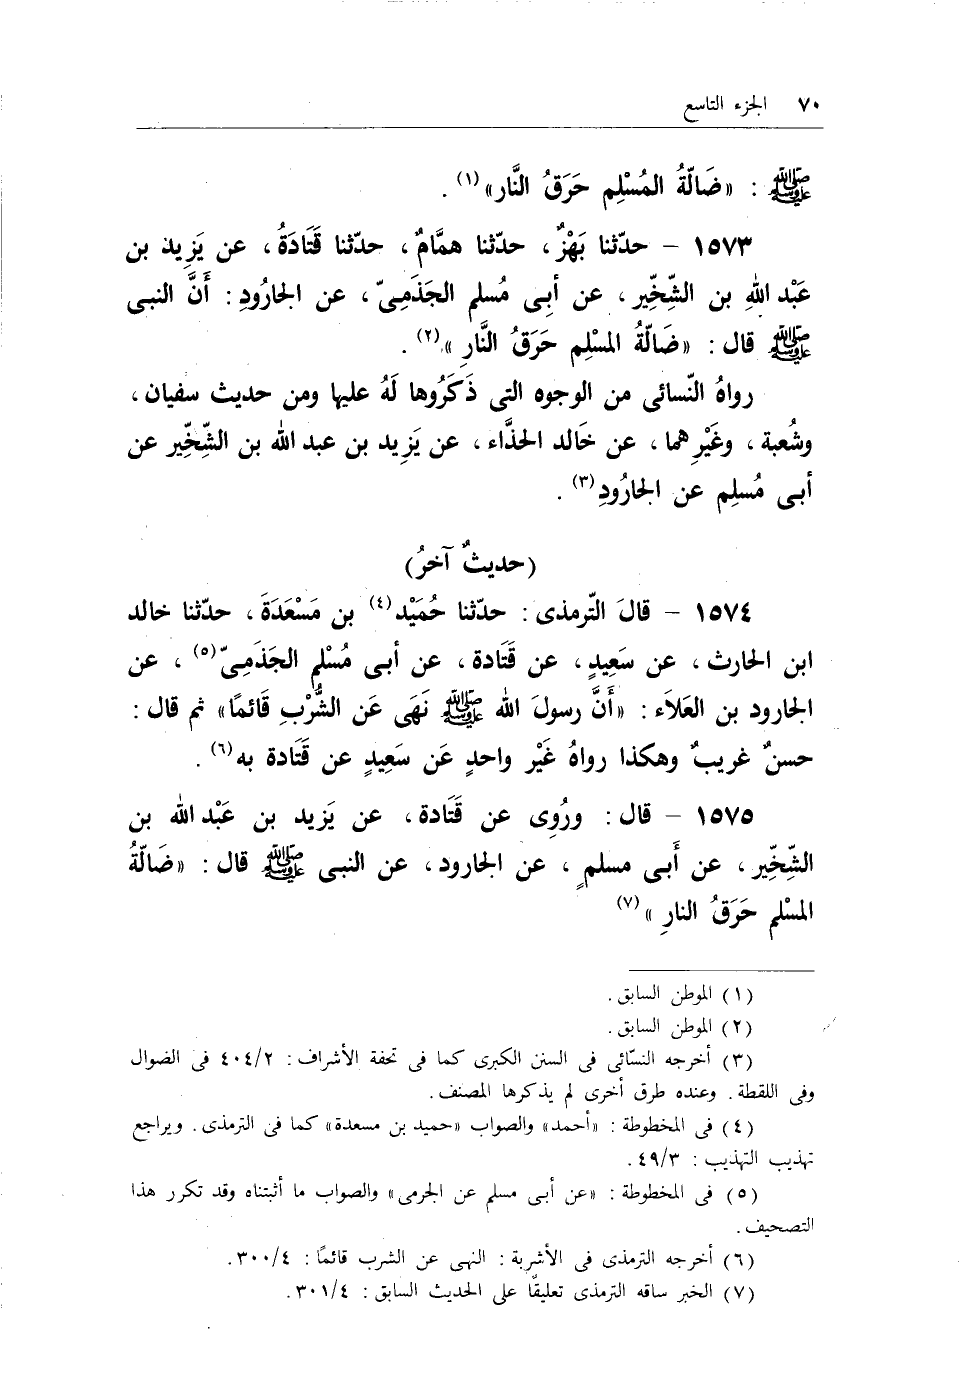 ٧٠ الجزء التاسع
ﷺ : «ضَالَّةُ المُسْلِمِ حَرَقُ النَّار»(١) .
١٥٧٣ – حدّثنا بَهْزٌ، حدّثنا همَّامٌ، حدّثنا قَتَادَةُ، عن يَزِيد بن
عَبْد اللهِ بن الشِّخِّيرِ، عن أبِى مُسلمٍ الجَذَمِىّ، عن الجارُودِ: أَنَّ النبى
ﷺ قال: «ضَالَّةُ المسْلِمِ حَرَقُ النَّارِ»(٢) .
رواهُ النّسائى من الوجوه التى ذَكَرُوها لَهُ عليها ومن حديث سفيان،
وشُعبة، وغَيْرِهما، عن خَالد الحذَّاء، عن يَزِيد بن عبد الله بن الشِّخِّير عن
أبى مُسلِمٍ عن الجارُودِ(٣) .
(حديثٌ آخرُ)
١٥٧٤ – قالَ التّرمذى: حدّثنا حُمَيْد(٤) بن مَسْعَدَةَ، حدّثنا خالد
ابن الحارث، عن سَعِيدٍ، عن قَتَادة، عن أبى مُسْلمٍ الجَذَمِىّ(٥)، عن
الجارود بن العَلاَء: «أنَّ رسولَ الله ﷺ نَهَى عَن الشُّرْبِ قَائمًا» ثم قال:
حسنٌ غريبٌ وهكذا رواهُ غَيْر واحدٍ عَن سَعِيدٍ عن قَتَادة به(٦) .
١٥٧٥ – قال: ورُوِى عن قَتَادة، عن يَزيد بن عَبْد الله بن
الشِّخِّير، عن أَبى مسلمٍ، عن الجارود، عن النبى ﷺ قال: «ضَالَّةُ
المسْلمِ حَرَقُ النارِ»(٧)
(١) الموطن السابق .
(٢) الموطن السابق .
(٣) أخرجه النسّائى فى السنن الكبرى كما فى تحفة الأشراف: ٤٠٤/٢ فى الضوال
وفى اللقطة. وعنده طرق أخرى لم يذكرها المصنف.
(٤) فى المخطوطة: «أحمد» والصواب «حميد بن مسعدة» كما فى الترمذى. ويراجع
تهذيب التهذيب: ٤٩/٣.
(٥) فى المخطوطة: «عن أبى مسلم عن الجرمى» والصواب ما أثبتناه وقد تكرر هذا
التصحيف.
(٦) أخرجه الترمذى فى الأشربة: النهى عن الشرب قائمًا: ٣٠٠/٤.
(٧) الخبر ساقه الترمذى تعليقًا على الحديث السابق: ٣٠١/٤.